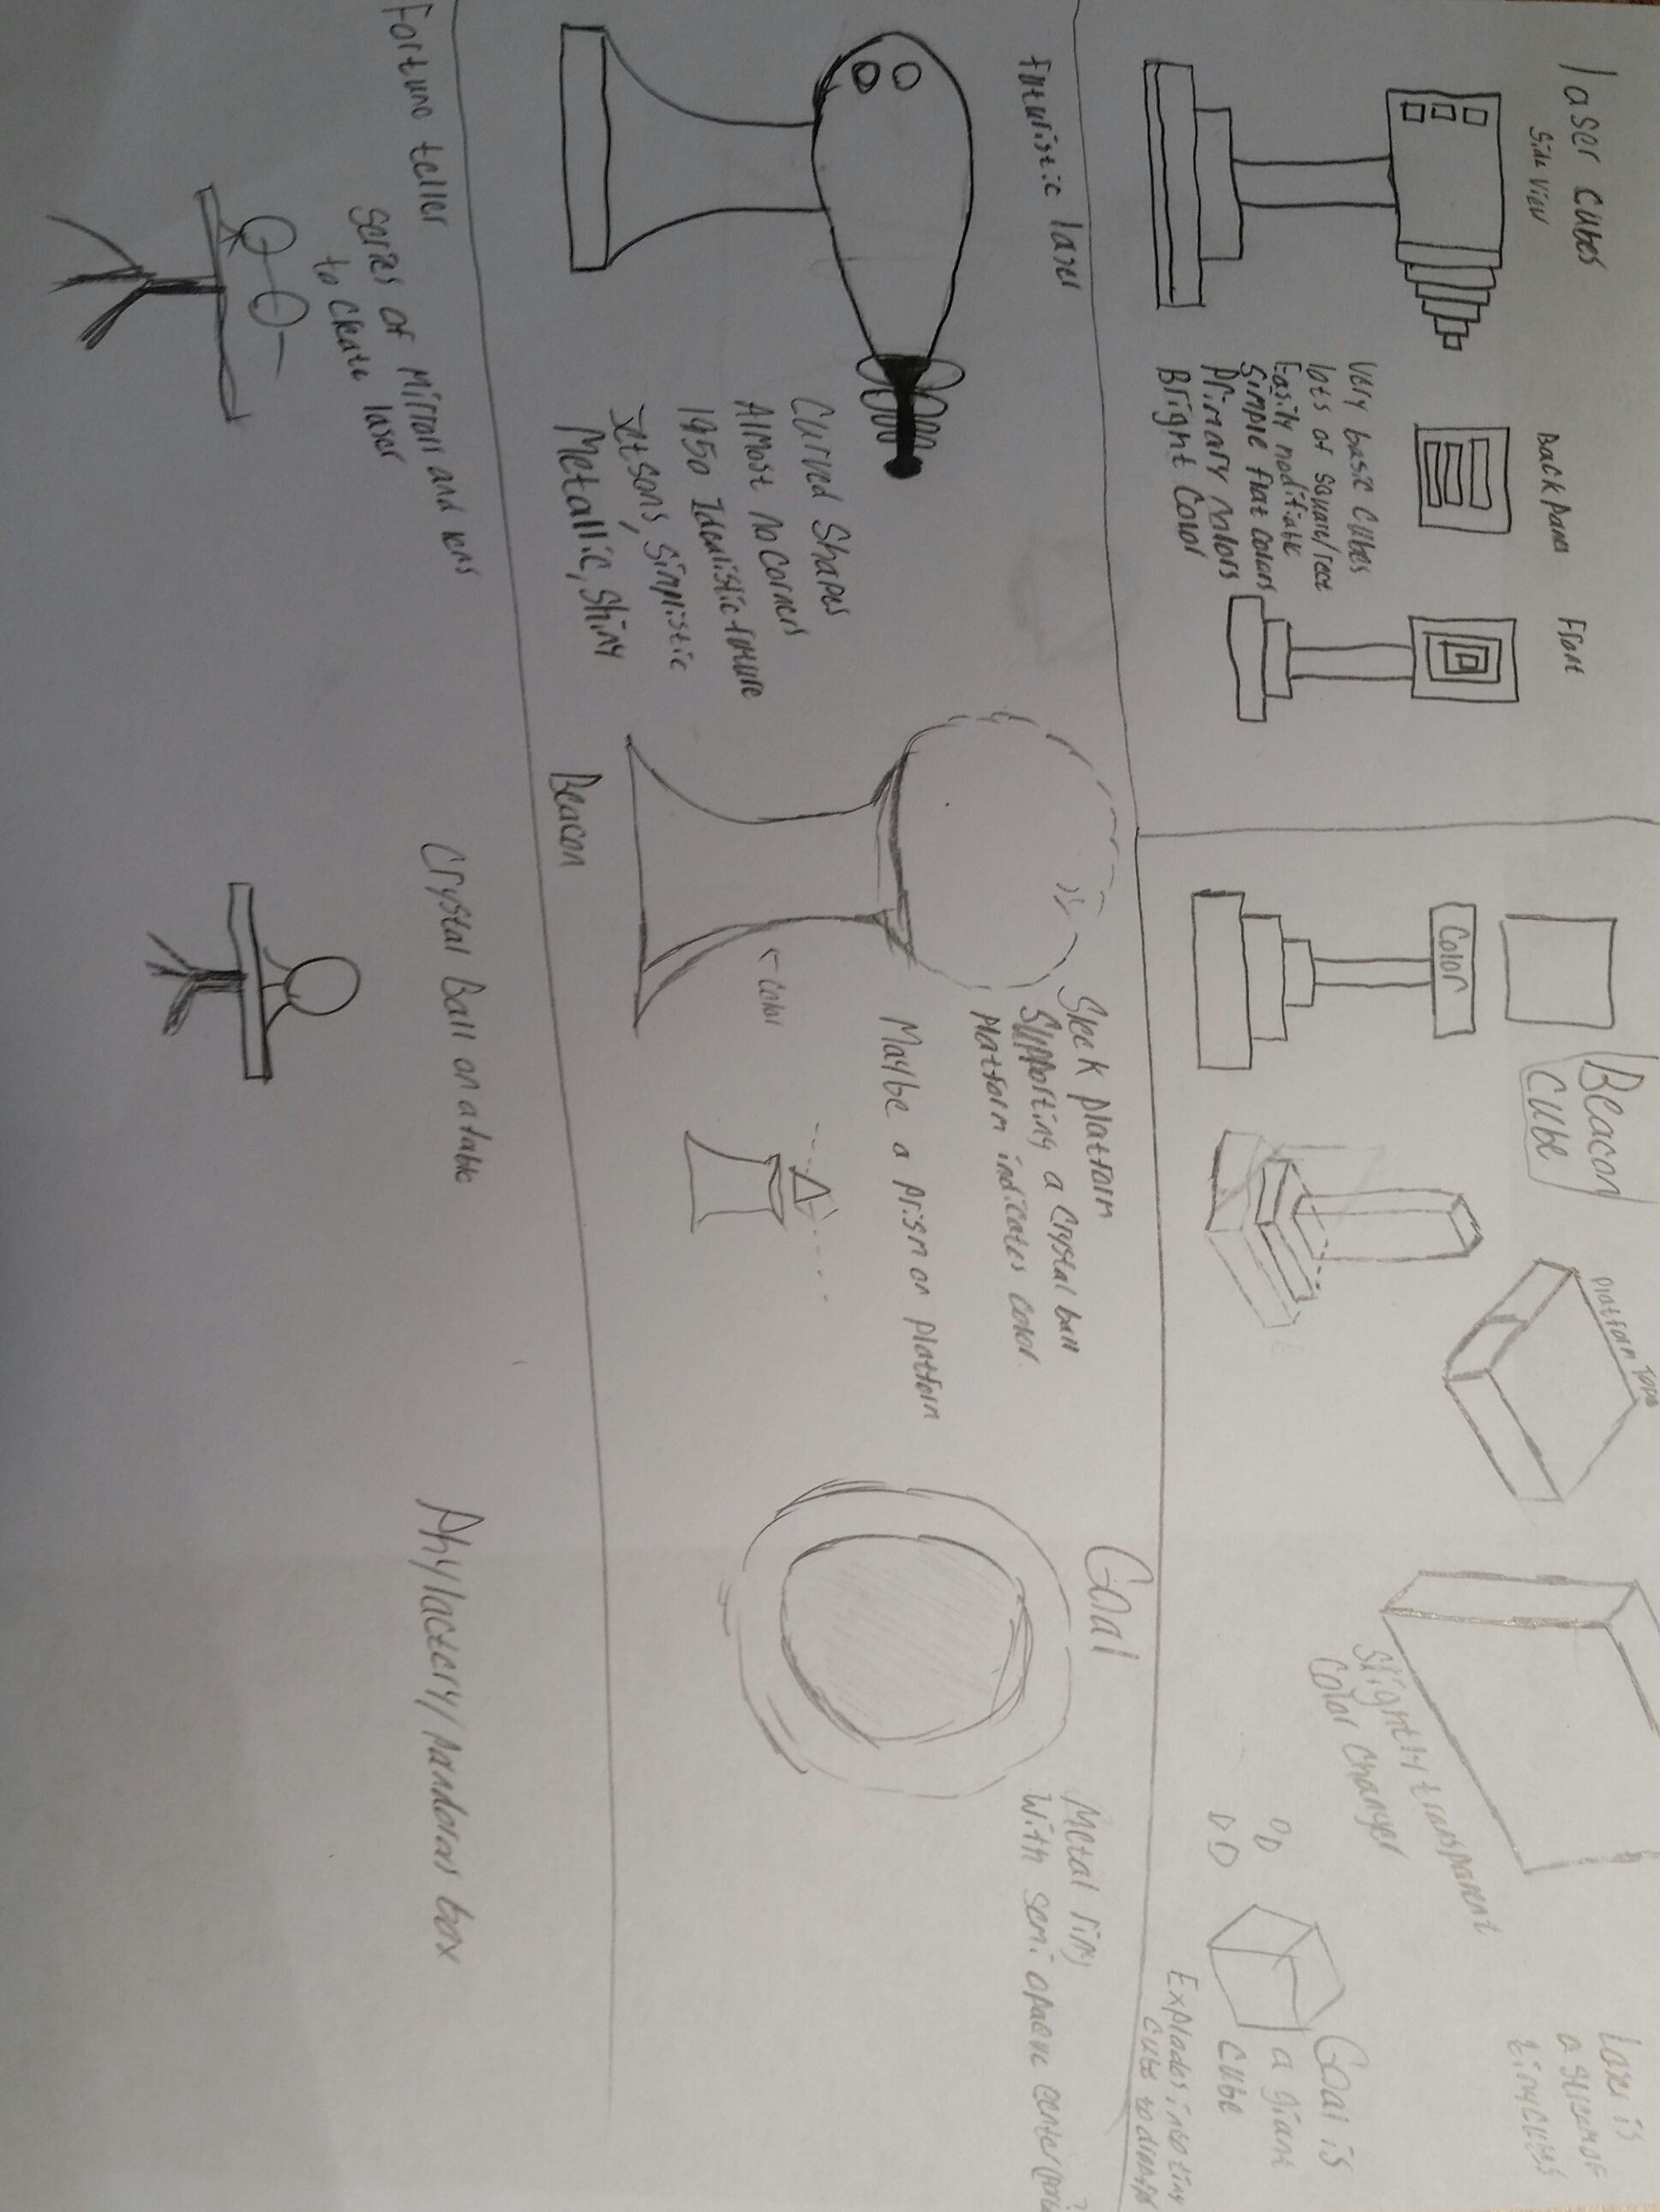 laser cubes
Side View
Back Panel
Front
Very basic cubes
lots of square/rect
Easily modifiable
Simple flat colors
Primary colors
Bright Color
Beacon
Cube
Color
Platform Tops
Slightly transparent
Color Changer
Laser is
a stream of
tiny cubes
Goal is
a giant
cube
Explodes into tiny
cube to
futuristic laser
Curved Shapes
Almost no corners
1950 Idealistic future
Jetsons, simplistic
Metallic, shiny
Sleek platform
Supporting a crystal ball
Platform indicates color
Maybe a prism on platform
← Color
Beacon
Goal
Metal ring
With semi opaque center
Fortune teller
Series of Mirrors and lens
to create laser
Crystal Ball on a table
Phylactery/pandoras box